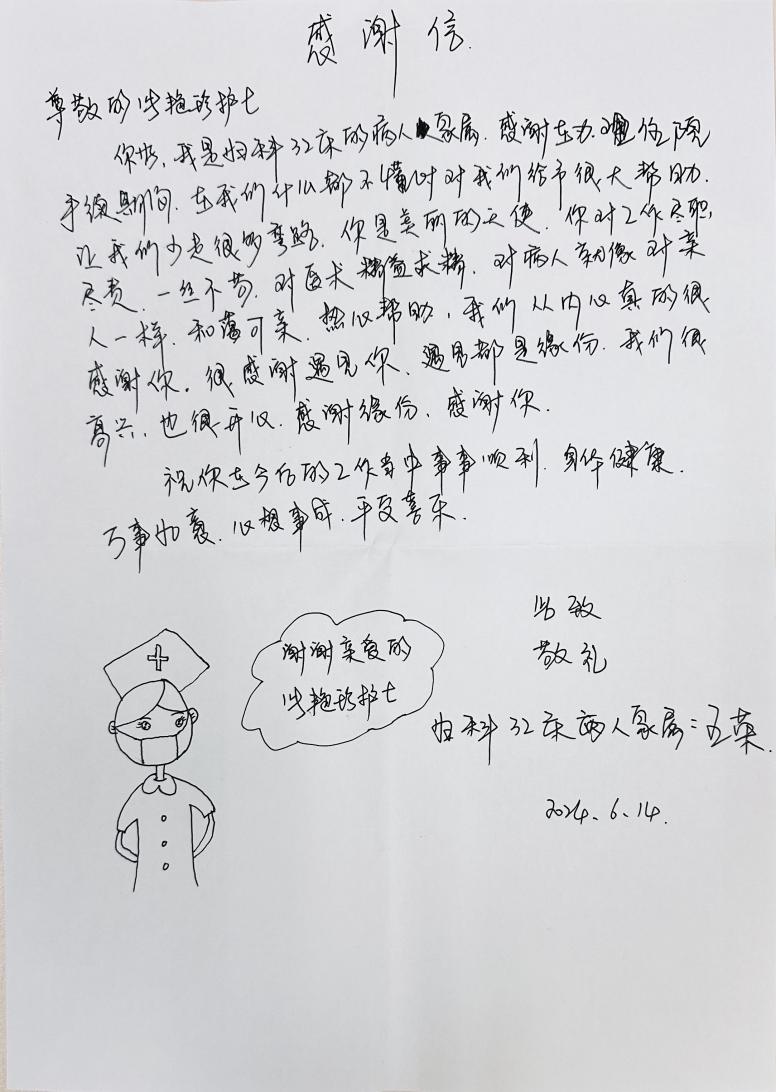 感谢信
尊敬的 艳珍护士
你好，我是妇科32床的病人家属。感谢在办理住院
手续期间，在我们什么都不懂时对我们给予很大帮助，
让我们少走很多弯路，你是美丽的天使，你对工作尽职
尽责，一丝不苟，对医术精益求精，对病人就像对亲
人一样，和蔼可亲，热心帮助，我们从内心真的很
感谢你。很感谢遇见你，遇见都是缘份，我们很
高兴，也很开心，感谢缘份，感谢你。
祝你在今后的工作当中事事顺利，身体健康，
万事如意，心想事成，平安喜乐。
谢谢亲爱的
艳珍护士
此致
敬礼
妇科32床病人家属：王荣
2024.6.14.